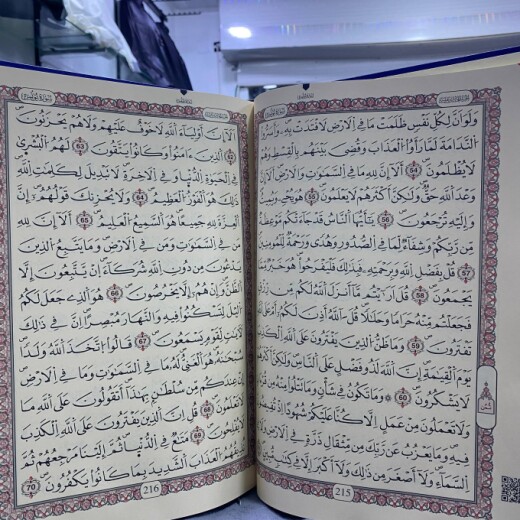 وَلَوْ أَنَّ لِكُلِّ نَفْسٍ ظَلَمَتْ مَا فِي الْأَرْضِ لَافْتَدَتْ بِهِ ۗ وَأَسَرُّوا
النَّدَامَةَ لَمَّا رَأَوُا الْعَذَابَ ۖ وَقُضِيَ بَيْنَهُم بِالْقِسْطِ ۚ وَهُمْ
لَا يُظْلَمُونَ 54 أَلَا إِنَّ لِلَّهِ مَا فِي السَّمَٰوَٰتِ وَالْأَرْضِ ۗ أَلَا إِنَّ
وَعْدَ اللَّهِ حَقٌّ وَلَٰكِنَّ أَكْثَرَهُمْ لَا يَعْلَمُونَ 55 هُوَ يُحْيِۦ وَيُمِيتُ
وَإِلَيْهِ تُرْجَعُونَ 56 يَٰٓأَيُّهَا النَّاسُ قَدْ جَآءَتْكُم مَّوْعِظَةٌ
مِّن رَّبِّكُمْ وَشِفَآءٌ لِّمَا فِي الصُّدُورِ وَهُدًى وَرَحْمَةٌ لِّلْمُؤْمِنِينَ
57 قُلْ بِفَضْلِ اللَّهِ وَبِرَحْمَتِهِ فَبِذَٰلِكَ فَلْيَفْرَحُوا هُوَ خَيْرٌ مِّمَّا
يَجْمَعُونَ 58 قُلْ أَرَءَيْتُم مَّآ أَنزَلَ اللَّهُ لَكُم مِّن رِّزْقٍ
فَجَعَلْتُم مِّنْهُ حَرَامًا وَحَلَٰلًا قُلْ ءَآللَّهُ أَذِنَ لَكُمْ ۖ أَمْ عَلَى اللَّهِ
تَفْتَرُونَ 59 وَمَا ظَنُّ الَّذِينَ يَفْتَرُونَ عَلَى اللَّهِ الْكَذِبَ
يَوْمَ الْقِيَٰمَةِ ۗ إِنَّ اللَّهَ لَذُو فَضْلٍ عَلَى النَّاسِ وَلَٰكِنَّ أَكْثَرَهُمْ
لَا يَشْكُرُونَ 60 وَمَا تَكُونُ فِي شَأْنٍ وَمَا تَتْلُوا مِنْهُ مِن قُرْءَانٍ
وَلَا تَعْمَلُونَ مِنْ عَمَلٍ إِلَّا كُنَّا عَلَيْكُمْ شُهُودًا إِذْ تُفِيضُونَ
فِيهِ ۚ وَمَا يَعْزُبُ عَن رَّبِّكَ مِن مِّثْقَالِ ذَرَّةٍ فِي الْأَرْضِ وَلَا فِي
السَّمَآءِ وَلَآ أَصْغَرَ مِن ذَٰلِكَ وَلَآ أَكْبَرَ إِلَّا فِي كِتَٰبٍ مُّبِينٍ
215
أَلَآ إِنَّ أَوْلِيَآءَ اللَّهِ لَا خَوْفٌ عَلَيْهِمْ وَلَا هُمْ يَحْزَنُونَ
62 الَّذِينَ ءَامَنُوا وَكَانُوا يَتَّقُونَ 63 لَهُمُ الْبُشْرَىٰ
فِي الْحَيَوٰةِ الدُّنْيَا وَفِي الْءَاخِرَةِ ۚ لَا تَبْدِيلَ لِكَلِمَٰتِ اللَّهِ ۚ
ذَٰلِكَ هُوَ الْفَوْزُ الْعَظِيمُ 64 وَلَا يَحْزُنكَ قَوْلُهُمْ ۘ إِنَّ
الْعِزَّةَ لِلَّهِ جَمِيعًا ۚ هُوَ السَّمِيعُ الْعَلِيمُ 65 أَلَآ إِنَّ لِلَّهِ
مَن فِي السَّمَٰوَٰتِ وَمَن فِي الْأَرْضِ ۗ وَمَا يَتَّبِعُ الَّذِينَ
يَدْعُونَ مِن دُونِ اللَّهِ شُرَكَآءَ ۚ إِن يَتَّبِعُونَ إِلَّا
الظَّنَّ وَإِنْ هُمْ إِلَّا يَخْرُصُونَ 66 هُوَ الَّذِي جَعَلَ لَكُمُ
الَّيْلَ لِتَسْكُنُوا فِيهِ وَالنَّهَارَ مُبْصِرًا ۚ إِنَّ فِي ذَٰلِكَ
لَءَايَٰتٍ لِّقَوْمٍ يَسْمَعُونَ 67 قَالُوا اتَّخَذَ اللَّهُ وَلَدًا ۗ
سُبْحَٰنَهُ ۖ هُوَ الْغَنِيُّ ۖ لَهُ مَا فِي السَّمَٰوَٰتِ وَمَا فِي الْأَرْضِ ۚ
إِنْ عِندَكُم مِّن سُلْطَٰنٍ بِهَٰذَآ ۚ أَتَقُولُونَ عَلَى اللَّهِ مَا
لَا تَعْلَمُونَ 68 قُلْ إِنَّ الَّذِينَ يَفْتَرُونَ عَلَى اللَّهِ الْكَذِبَ
لَا يُفْلِحُونَ 69 مَتَٰعٌ فِي الدُّنْيَا ثُمَّ إِلَيْنَا مَرْجِعُهُمْ ثُمَّ
نُذِيقُهُمُ الْعَذَابَ الشَّدِيدَ بِمَا كَانُوا يَكْفُرُونَ 70
216